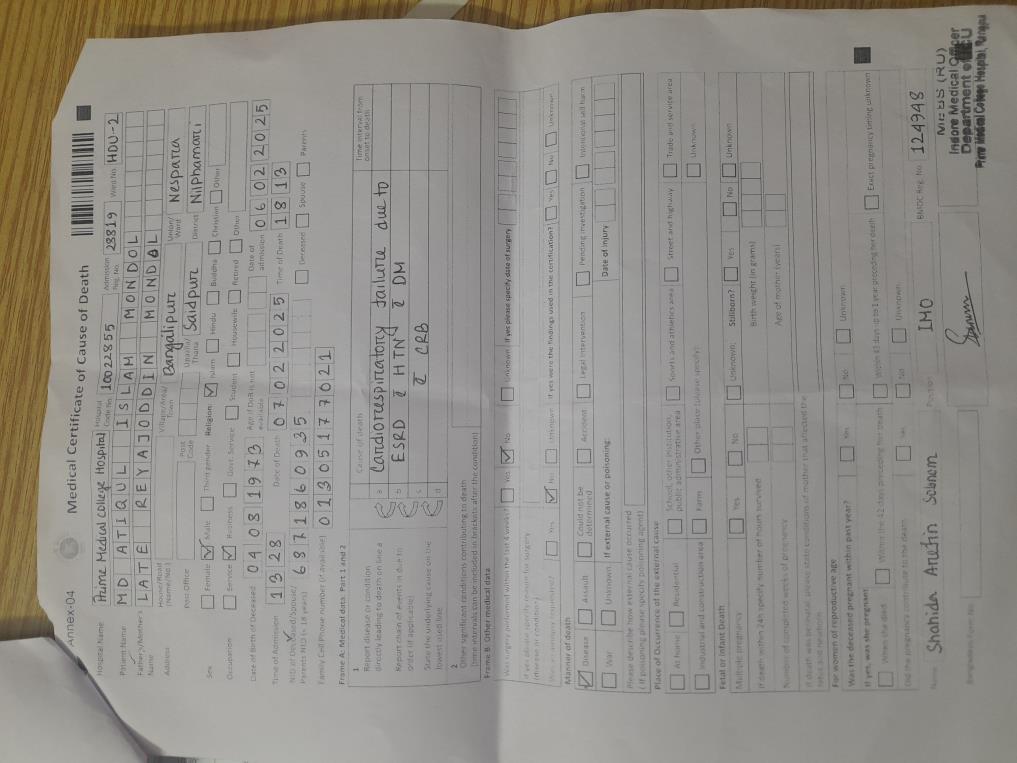 Annex-04 Medical Certificate of Cause of Death
Hospital Name Prime Medical College Hospital Hospital Code No. 1002855 Admission Reg. No. 28819 Ward No. HDU-2
Patient Name MD ATIQUL ISLAM MONDOL
Father's/Mother's Name LATE REYAJODDIN MONDAL
Address House/Road (Name/No.) Village/Area/Town Bangalipur Union/Ward Nesparia
Post Office Post Code Upazila/Thana Saidpur District Nilphamari
Sex Female Male Third gender Religion: Islam Hindu Buddha Christian Other
Occupation Service Business Govt. Service Student Housewife Retired Other
Date of Birth of Deceased 04081973 Age if DoB is not available Date of admission 06022025
Time of Admission 1328 Date of Death 07022025 Time of Death 1813
NID of Deceased/Spouse/Parents NID (< 18 years) 6871860935 Deceased Spouse Parents
Family Cell/Phone number (if available) 01305177021
Frame A: Medical data. Part 1 and 2
1 Cause of death Time interval from onset to death
Report disease or condition directly leading to death on line a a Cardiorespiratory failure due to
Report chain of events in due to order (if applicable) b ESRD c̄ HTN c̄ DM
State the underlying cause on the lowest used line c c̄ CRB
d
2 Other significant conditions contributing to death (time intervals can be included in brackets after the condition)
Frame B: Other medical data
Was surgery performed within the last 4 weeks? Yes No Unknown If yes please specify date of surgery
If yes please specify reason for surgery (disease or condition)
Was an autopsy requested? Yes No Unknown If yes were the findings used in the certification? Yes No Unknown
Manner of death
Disease Assault Could not be determined Accident Legal intervention Pending investigation Intentional self harm
War Unknown If external cause or poisoning: Date of injury
Please describe how external cause occurred (If poisoning please specify poisoning agent)
Place of Occurrence of the external cause
At home Residential School, other institution, public administrative area Sports and athletics area Street and highway Trade and service area
Industrial and construction area Farm Other place (please specify): Unknown
Fetal or Infant Death
Multiple pregnancy Yes No Unknown; Stillborn? Yes No Unknown
If death within 24h specify number of hours survived Birth weight (in grams)
Number of completed weeks of pregnancy Age of mother (years)
If death was perinatal, please state conditions of mother that affected the fetus and newborn
For women of reproductive age
Was the deceased pregnant within past year? Yes No Unknown
If yes, was she pregnant
When she died Within the 42 days preceding her death Within 43 days up to 1 year preceding her death Exact pregnancy timing unknown
Did the pregnancy contribute to the death Yes No Unknown
Name Position IMO BMDC Reg. No. 124948
MBBS (RU)
Indore Medical Officer